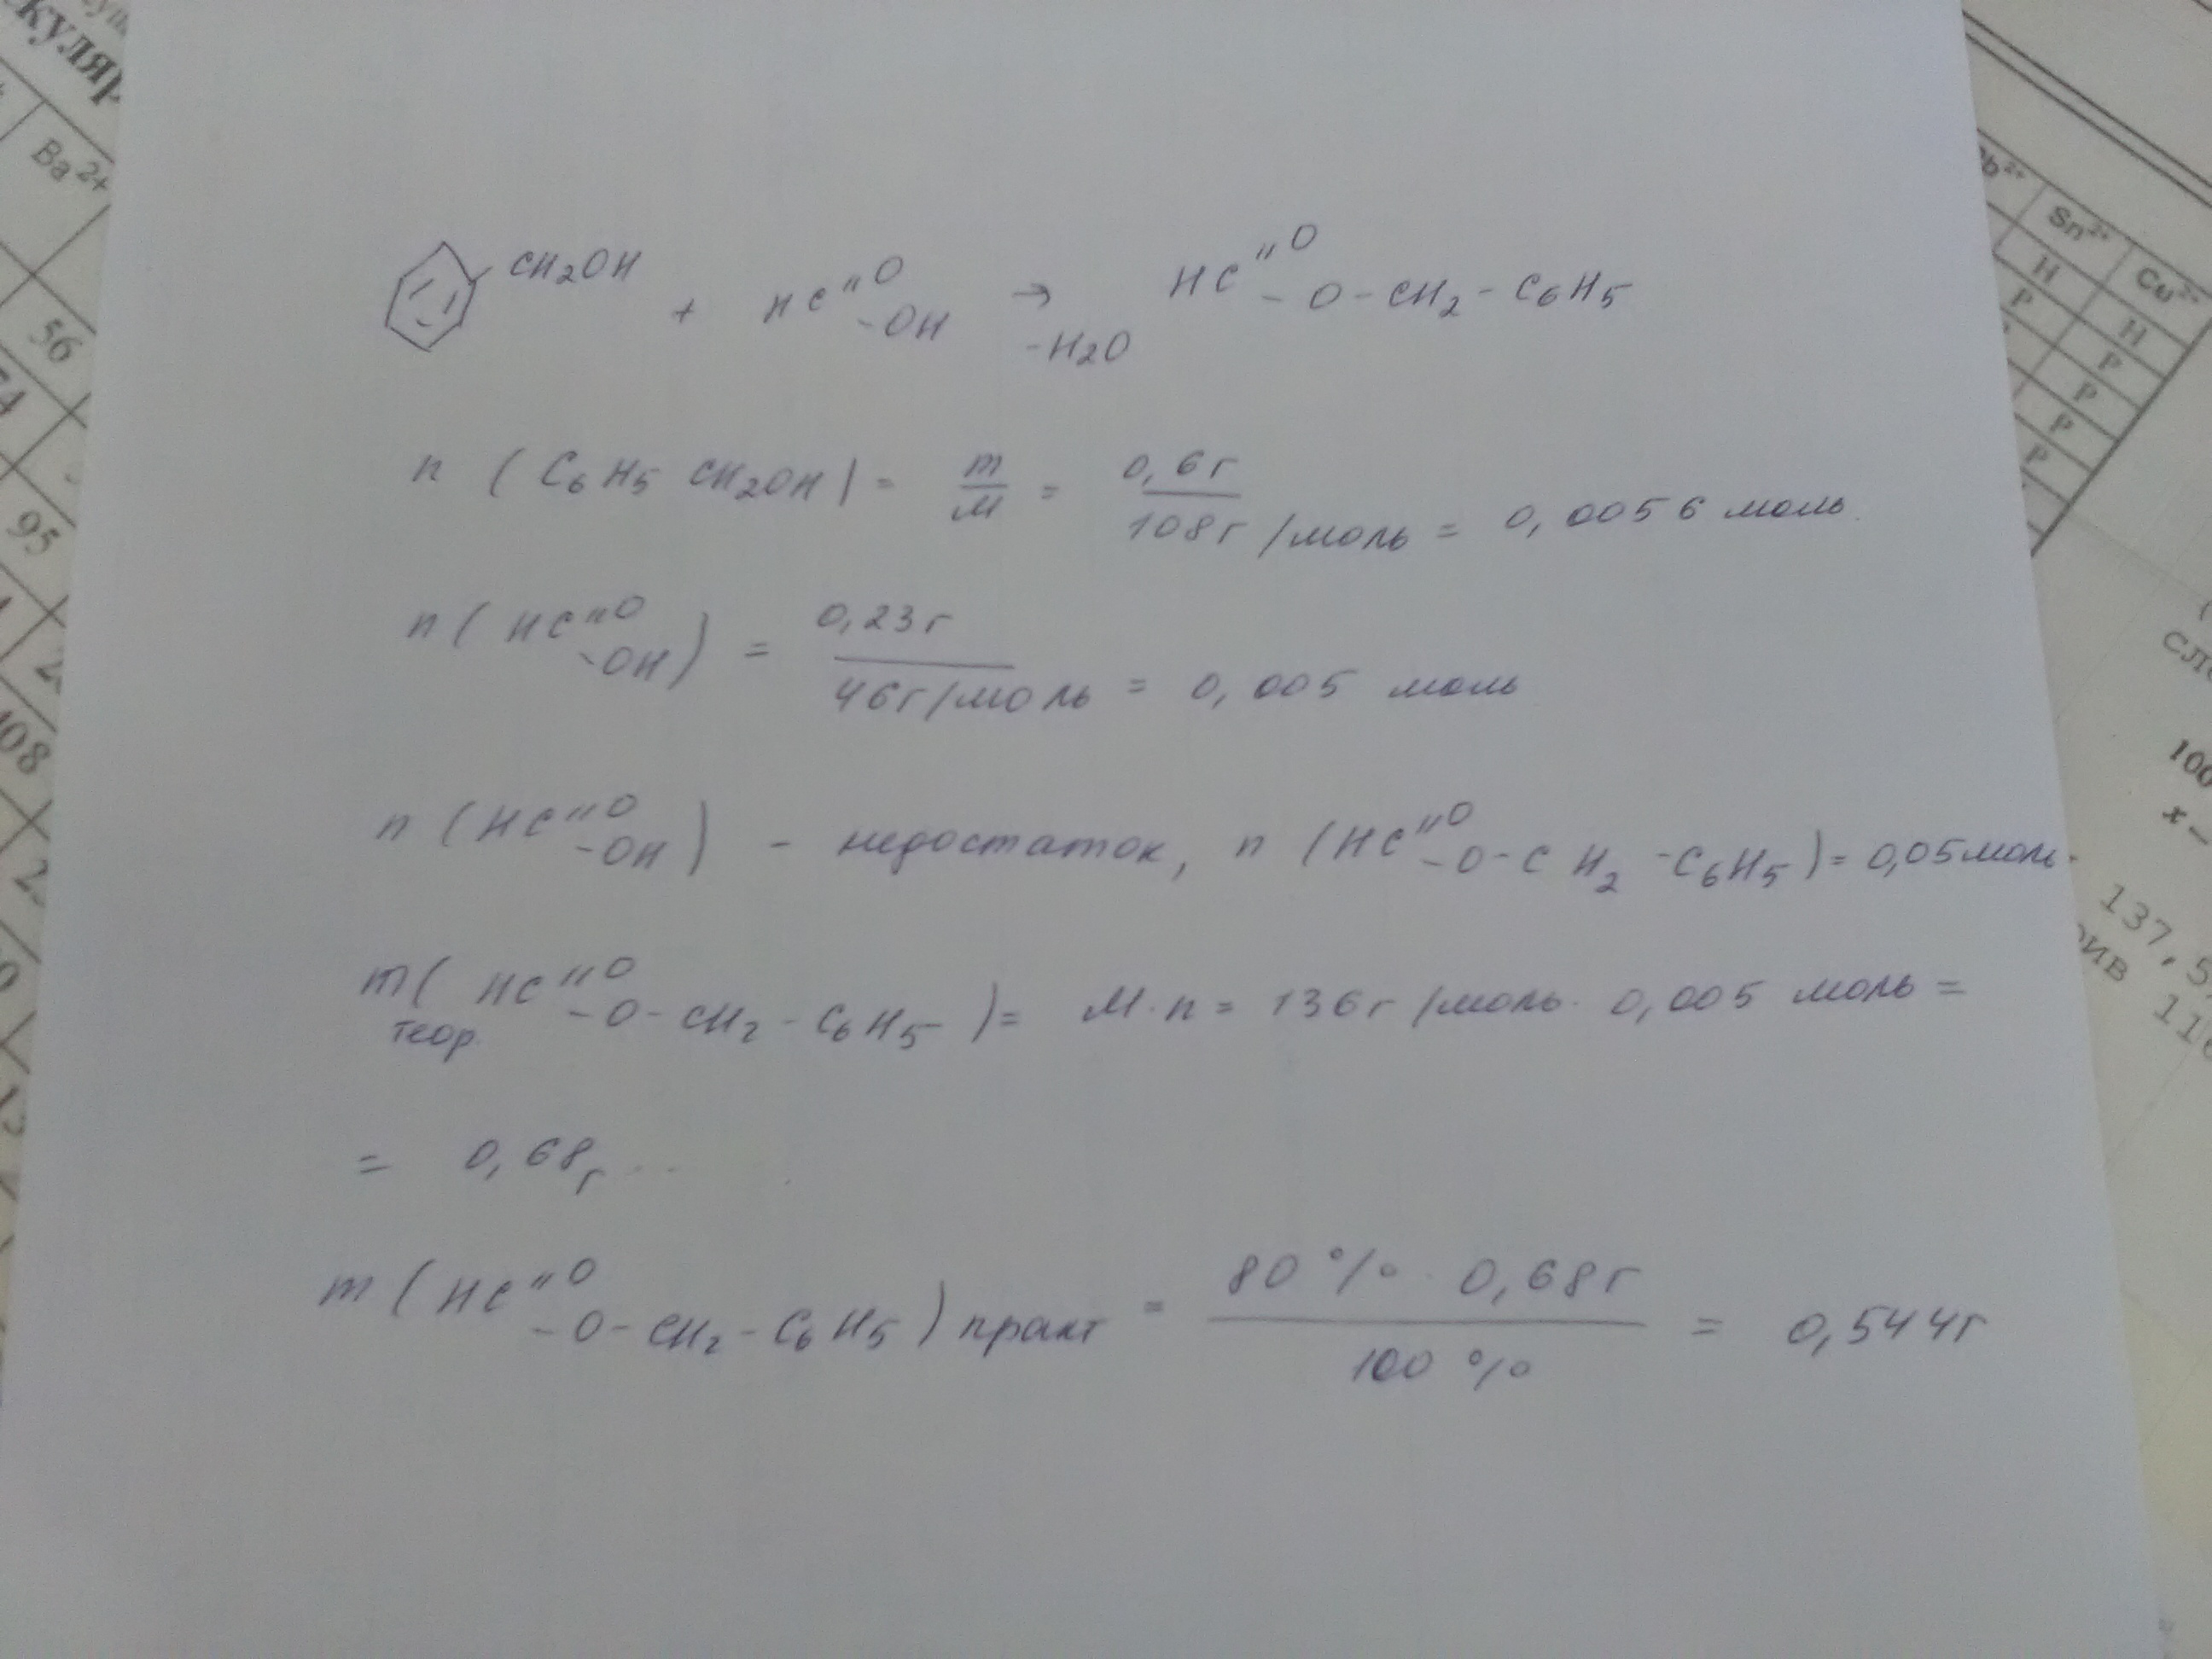 CH2OH + HC=O -OH → -H2O HC=O -O-CH2-C6H5
n (C6H5CH2OH) = m/M = 0,6г / 108г/моль = 0,0056 моль
n (HC=O -OH) = 0,23г / 46г/моль = 0,005 моль
n (HC=O -OH) - недостаток, n (HC=O -O-CH2-C6H5) = 0,05 моль
m теор (HC=O -O-CH2-C6H5) = M·n = 136г/моль · 0,005 моль =
= 0,68г
m (HC=O -O-CH2-C6H5) практ = 80% · 0,68г / 100% = 0,544г
Ba2+
56
95
Sn2+
Cu2+
Н
Р
Н
Р
Р
Р
Р
100
x –
137,5